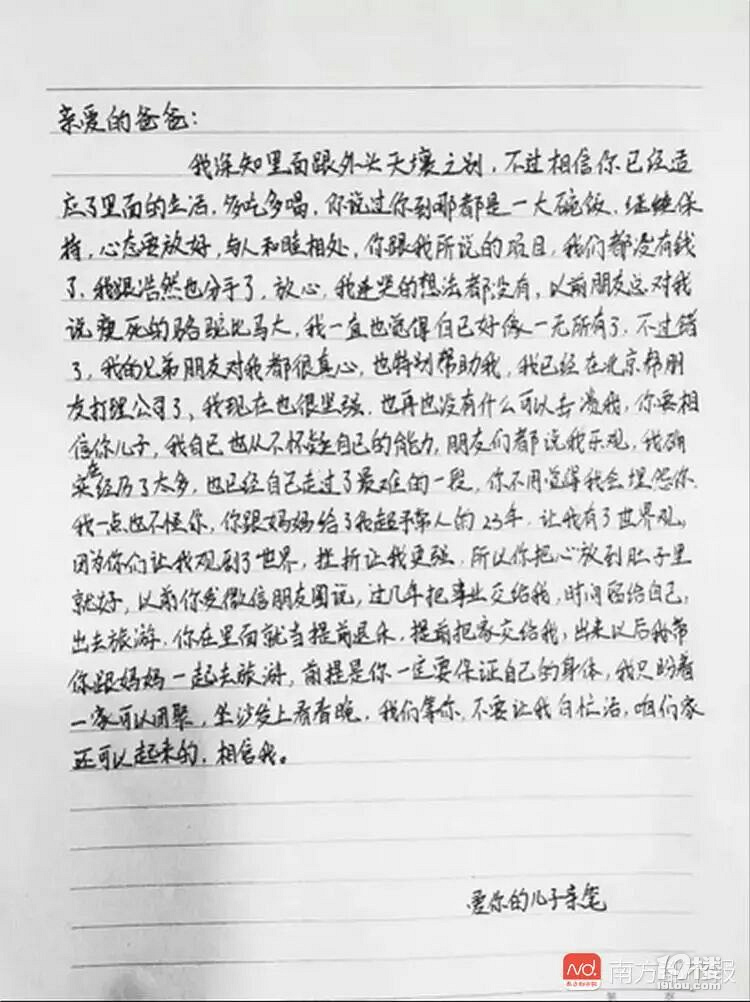 亲爱的爸爸：
我深知里面跟外头天壤之别，不过相信你已经适
应了里面的生活，多吃多喝，你说过你到哪都是一大碗饭，继续保
持，心态要放好，与人和睦相处，你跟我所说的项目，我们都没有钱
了，我跟浩然也分手了，放心，我连哭的想法都没有，以前朋友总对我
说瘦死的骆驼比马大，我一直也觉得自己好像一无所有了，不过错
了，我的兄弟朋友对我都很真心，也特别帮助我，我已经在北京帮朋
友打理公司了，我现在也很坚强，也再也没有什么可以击溃我，你要相
信你儿子，我自己也从不怀疑自己的能力，朋友们都说我乐观，我确
实经历了太多，也已经自己走过了最难的一段，你不用觉得我会埋怨你，
我一点也不怪你，你跟妈妈给了我超乎常人的23年，让我有了世界观。
因为你们让我观到了世界，挫折让我更强，所以你把心放到肚子里
就好，以前你发微信朋友圈说，过几年把事业交给我，时间留给自己，
出去旅游，你在里面就当提前退休，提前把家交给我，出来以后我带
你跟妈妈一起去旅游，前提是你一定要保证自己的身体，我只盼着
一家可以团聚，坐沙发上看春晚，我们等你，不要让我白忙活，咱们家
还可以起来的，相信我。
爱你的儿子亲笔
南方都市报
19楼
19lou.com